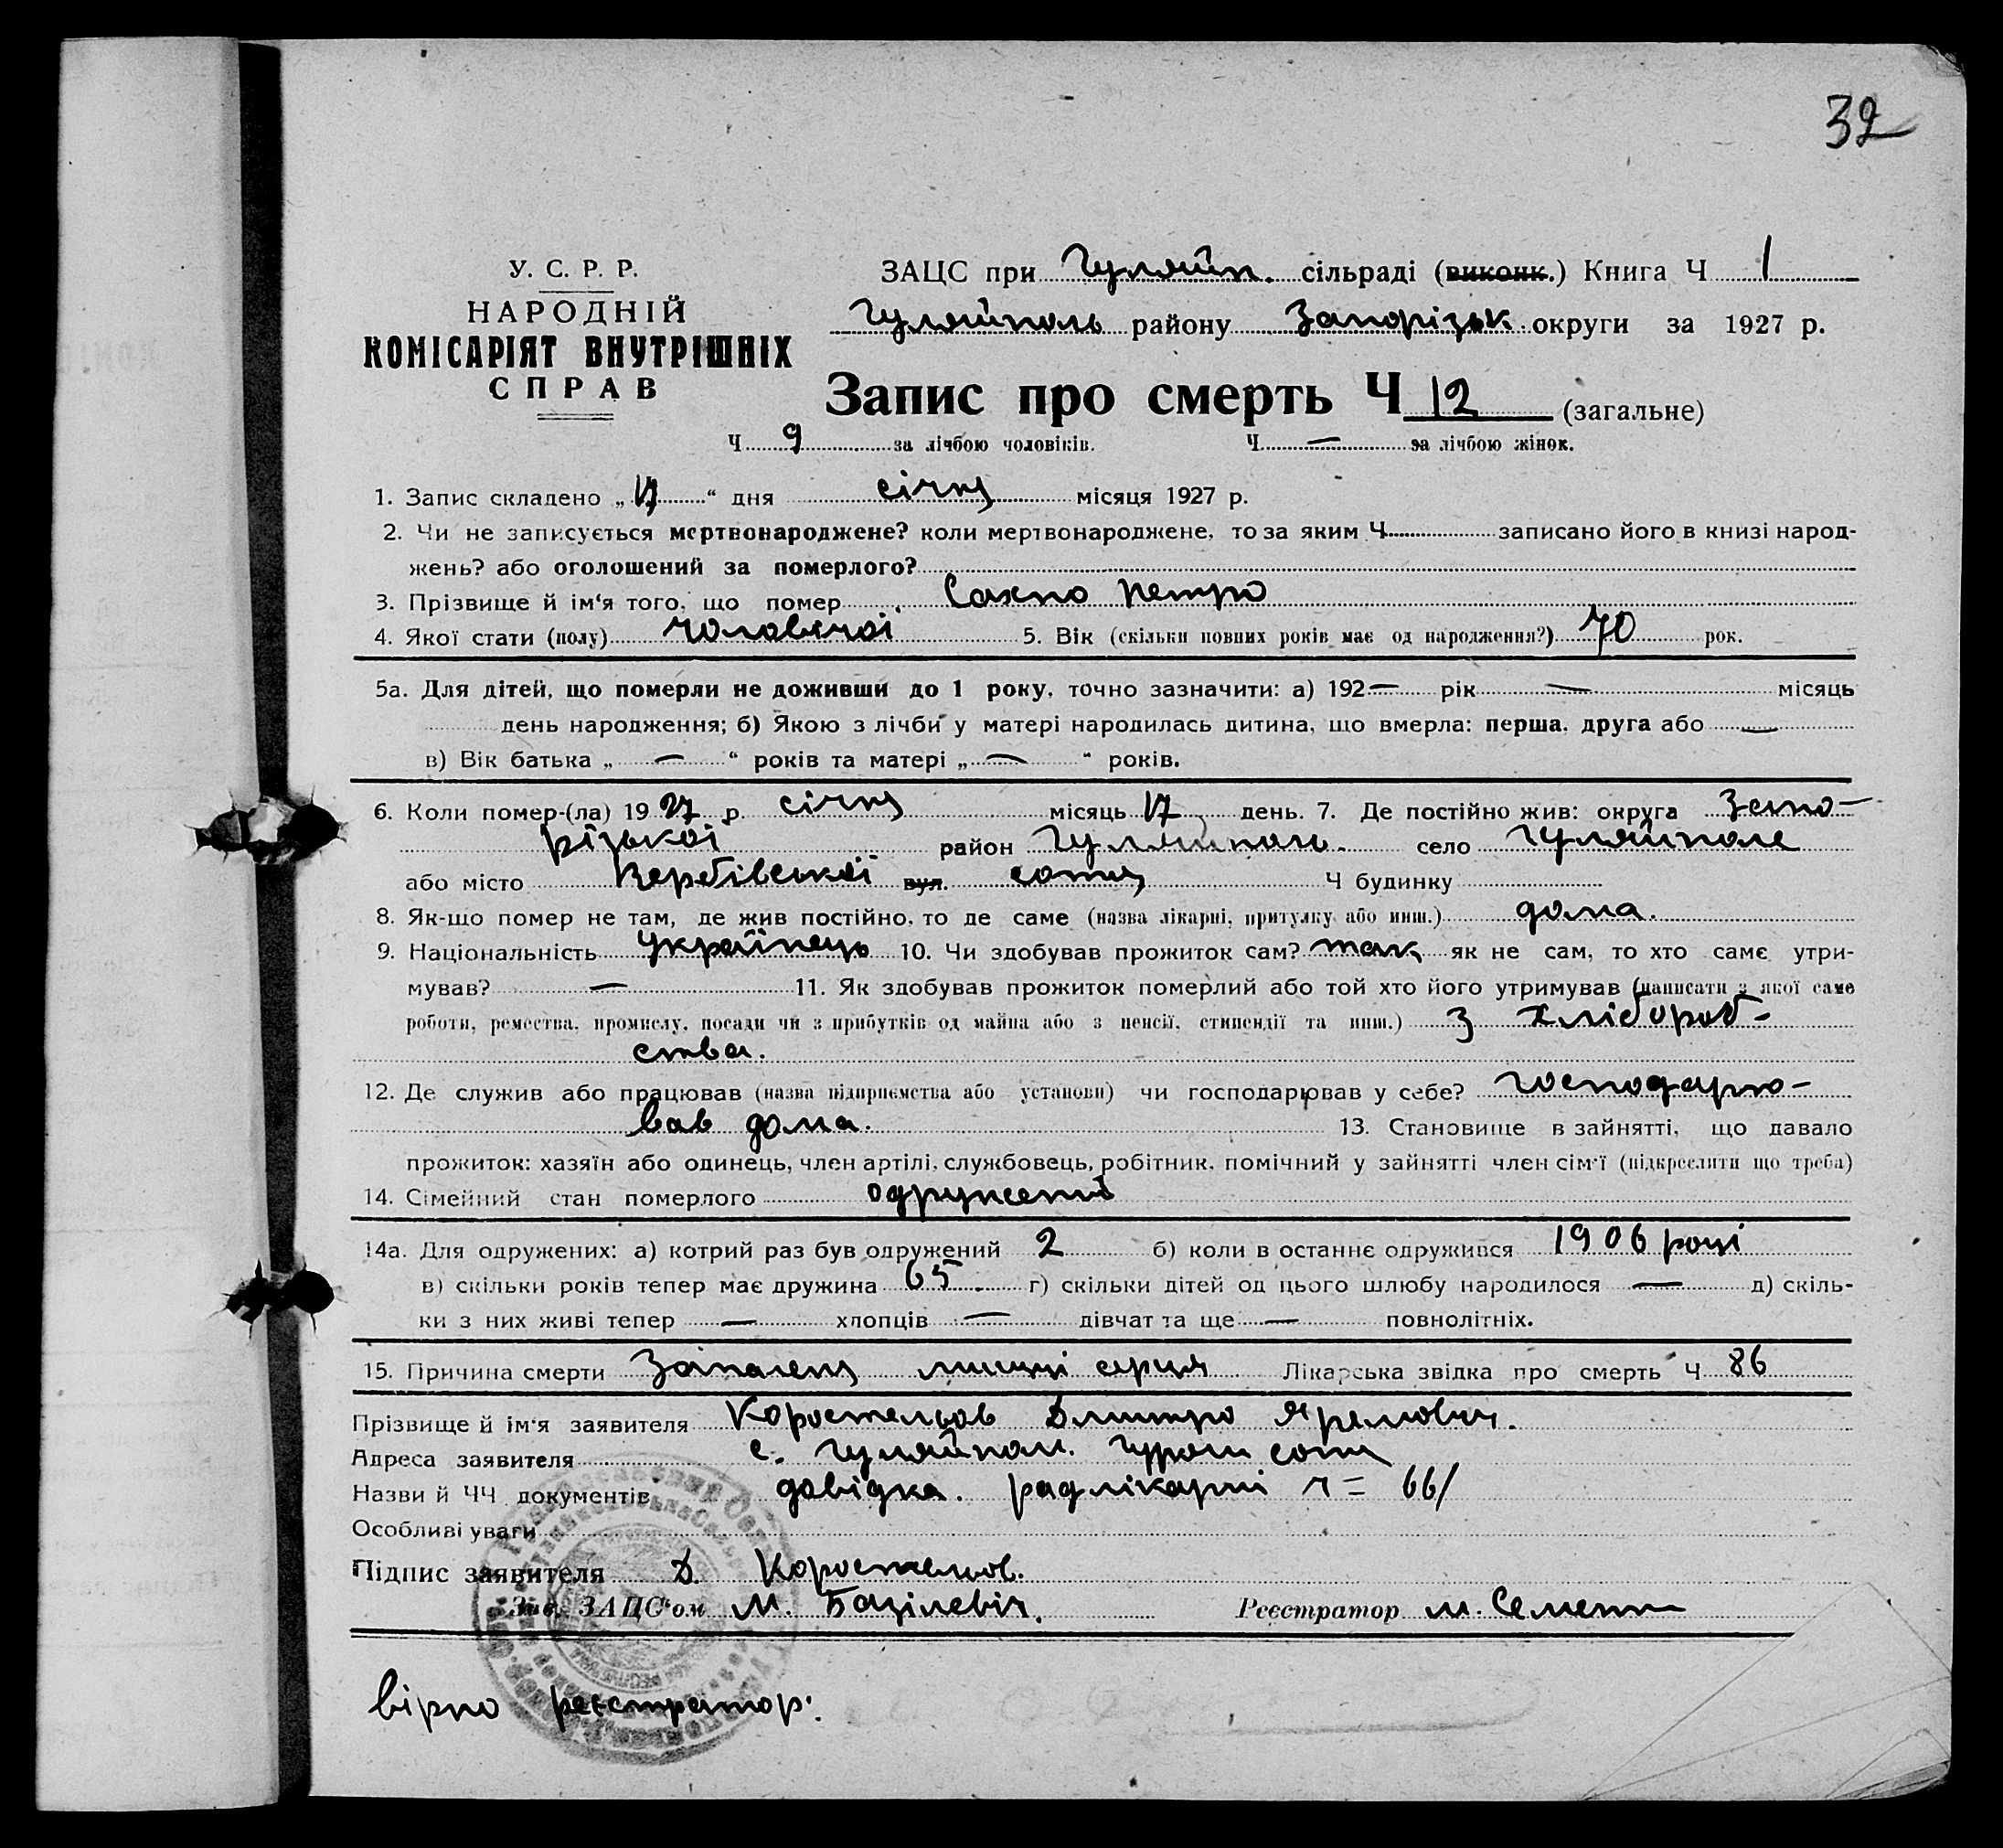 32
У. С. Р. Р.
НАРОДНІЙ
КОМІСАРІЯТ ВНУТРІШНІХ
СПРАВ
ЗАЦС при Гуляйп. сільраді (виконк.) Книга Ч 1
Гуляйполь району Запорізьк. округи за 1927 р.
Запис про смерть Ч 12 (загальне)
Ч 9 за лічбою чоловіків. Ч — за лічбою жінок.
1. Запис складено „17“ дня січня місяця 1927 р.
2. Чи не записується мертвонароджене? коли мертвонароджене, то за яким Ч записано його в книзі народ-
жень? або оголошений за померлого?
3. Прізвище й ім‘я того, що помер Сахно Петро
4. Якої стати (полу) чоловічої 5. Вік (скільки повних років має од народження?) 70 рок.
5а. Для дітей, що померли не доживши до 1 року, точно зазначити: а) 192— рік — місяць
день народження; б) Якою з лічби у матері народилась дитина, що вмерла: перша, друга або —
в) Вік батька „—“ років та матері „—“ років.
6. Коли помер-(ла) 1927 р. січня місяць 17 день. 7. Де постійно жив: округа Запо-
різької район Гуляйполь. село Гуляйполе
або місто Вербівської вул. сотня Ч будинку
8. Як-що помер не там, де жив постійно, то де саме (назва лікарні, притулку або инш.) дома.
9. Національність Українець 10. Чи здобував прожиток сам? так як не сам, то хто саме утри-
мував? — 11. Як здобував прожиток померлий або той хто його утримував (написати з якої саме
роботи, ремества, промислу, посади чи з прибутків од майна або з пенсії, стипендії та инш.) З хлібороб-
ства.
12. Де служив або працював (назва підприємства або установи) чи господарював у себе? господарю-
вав дома. 13. Становище в зайнятті, що давало
прожиток: хазяїн або одинець, член артілі, службовець, робітник, помічний у зайнятті член сім‘ї (підкреслити що треба)
14. Сімейний стан померлого одружений
14а. Для одружених: а) котрий раз був одружений 2 б) коли в останнє одружився 1906 році
в) скільки років тепер має дружина 65 г) скільки дітей од цього шлюбу народилося — д) скіль-
ки з них живі тепер — хлопців — дівчат та ще — повнолітніх.
15. Причина смерти Запалення мишці серця Лікарська звідка про смерть Ч 86
Прізвище й ім‘я заявителя Коростельов Дмитро Яремович.
Адреса заявителя с. Гуляйпол. сотн
Назви й ЧЧ документів довідка. радлікарні 66/
Особливі уваги
Підпис заявителя Д. Коростельов.
Зав. ЗАЦС‘ом М. Базілевіч. Реєстратор М. Семенн
вірно реєстратор: